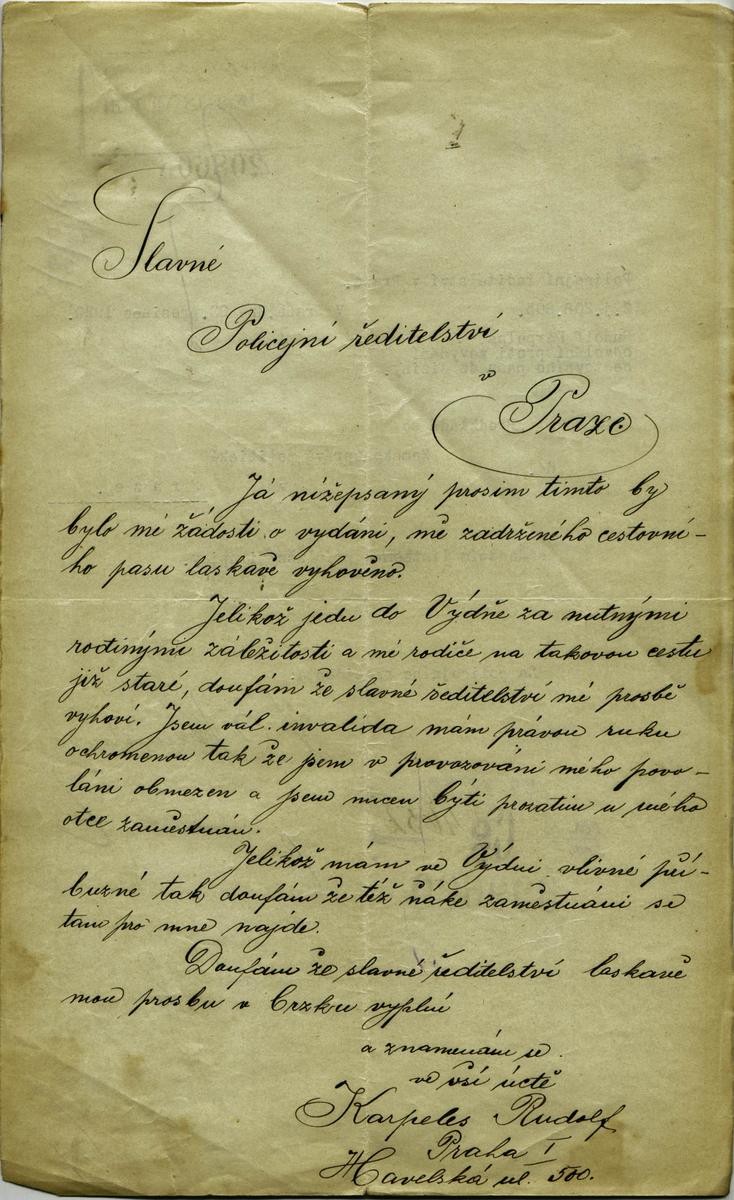 Slavné
Policejní ředitelství
v
Praze
Já nížepsaný prosim timto by
bylo mé žádosti o vydáni, mě zadrženého cestovní-
ho pasu laskavě vyhověno.
Jelikož jedu do Výdně za nutnými
rodinými záležitosti a mé rodiče na takovou cestu
již staré, doufám že slavné ředitelství mé prosbě
vyhoví. Jsem vál. invalida mám právou ruku
ochromenou tak že jsem v provozováni mého povo-
láni obmezen a jsem nucen býti prozatim u mého
otce zaměstnán.
Jelikož mám ve Výdni vlivné pří-
buzné tak doufám že též náke zaměstnáni se
tam pro mne najde.
Doufám že slavné ředitelství laskavě
mou prosbu v brzku vyplní
a znamenám se.
ve vší úctě
Karpeles Rudolf
Praha I
Havelská ul. 500.